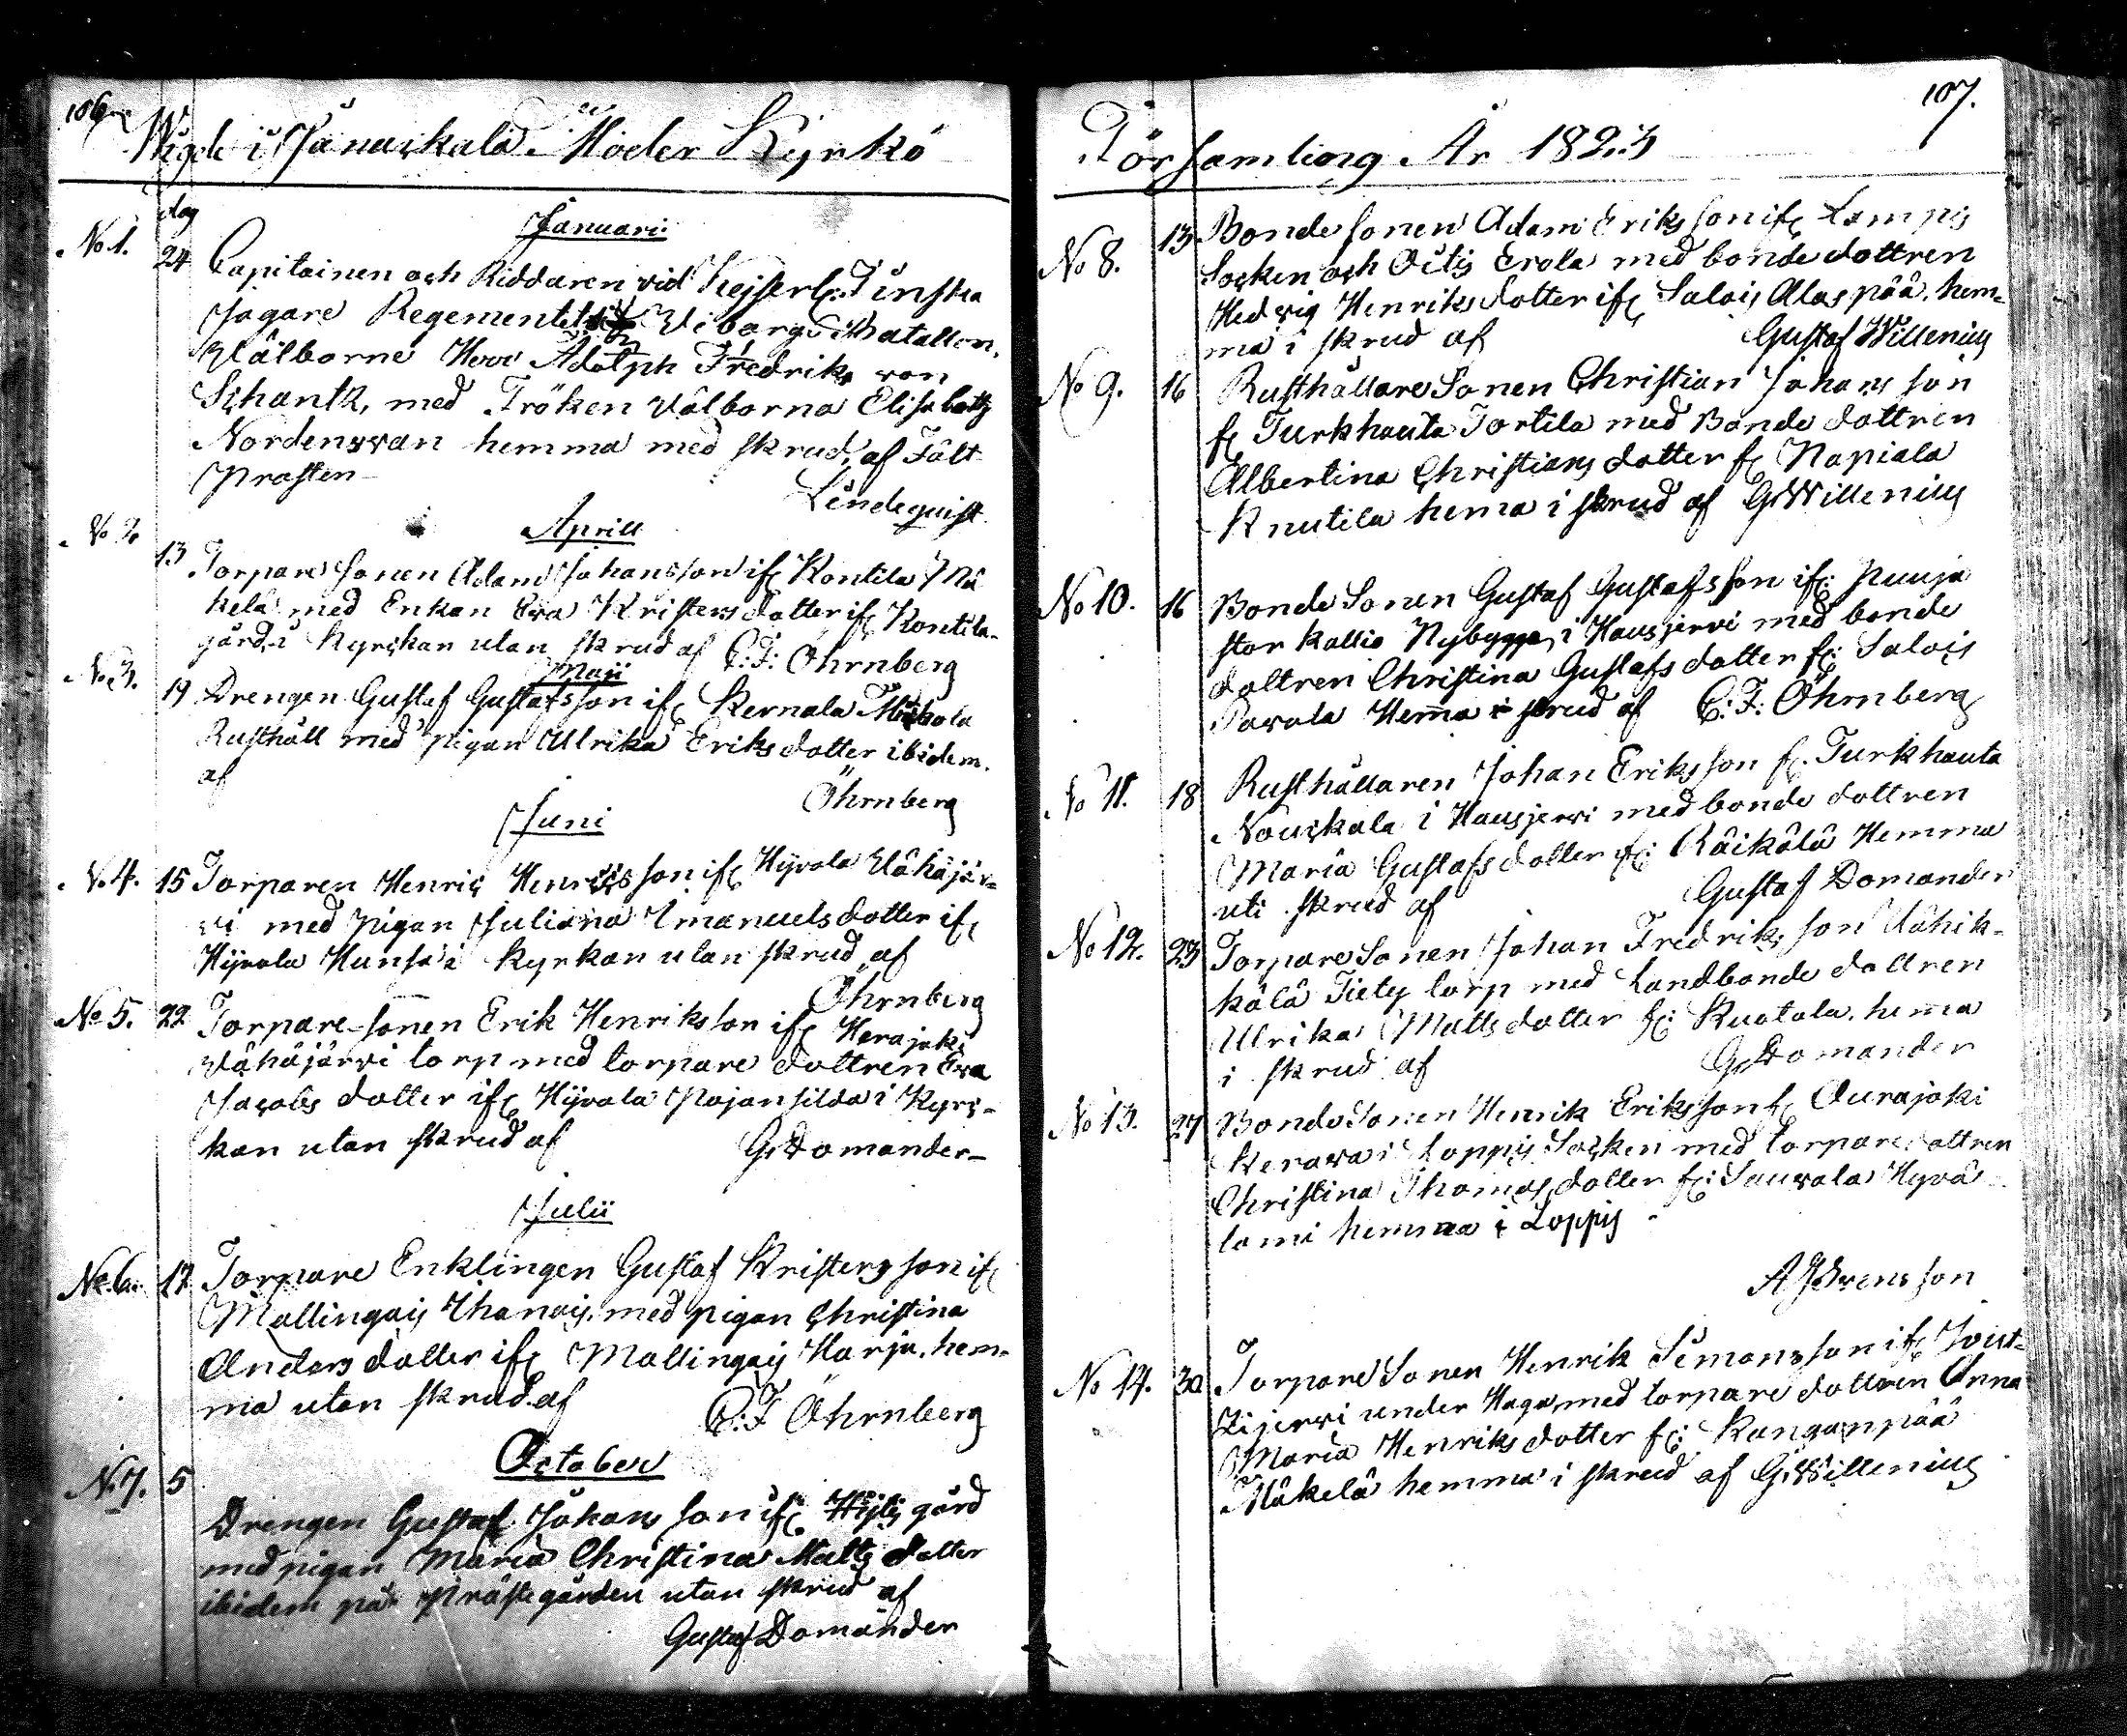 106
Wigde i Janackala Moder Kyrko
dag
Januari
No 1. 24 Capitainen och Riddaren vid Kejserl: Finska
Jägare Regementets Wiborgs Batallion,
Wälborne Herr Adolph Fredrik von
Schantz, med Fröken Wälborna Elisabeth
Nordensvan hemma med skrud, af Fält
Prosten
Lindequist
Aprill
No 2 13 Torpare Sonen Adam Johansson if: Kontila Mä
kelä med Enkan Eva Kristersdotter if: Kontila
gård, i Kyrckan utan skrud af C: F: Öhrnberg
Maji
No 3. 19 Drengen Gustaf Gustafsson if: Kernala Mikola
Rusthåll med pigan Ulrika Eriksdotter ibidem.
af
Öhrnberg
Juni
No 4. 15 Torparen Henric Henricsson if: Hyvola Wähäjär-
vi med pigan Juliana Imanuelsdotter if:
Hyvola Hunsa i Kyrkan utan skrud af
Öhrnberg
No 5. 22 Torpare-sonen Erik Henriksson if: Herajoki
Wähäjärvi torp med torpare dottren Eva
Jacobs dotter if: Hyvola Pajansilda i Kyrc-
kan utan skrud af G. Domander
Julii
No 6. 17 Torpare Enklingen Gustaf Kristersson if:
Mallingais Ihanais, med pigan Christina
Andersdotter if: Mallingais Harju, hem-
ma utan skrud. af C: F Öhrnberg
October
No 7. 5
Drengen Gustaf Johansson if: gård
med pigan Maria Christina Matts dotter
ibidem på Prästegården utan skrud af
Gustaf Domander
107.
Församling År 1823
No 8. 13 Bonde sonen Adam Eriksson if: Lampis
Socken och Oitis Erola med bonde dottren
Hedvig Henriksdotter if: Salois Alaspää, hem-
ma i skrud af Gustaf Willenius
No 9. 16 Rusthållare Sonen Christian Johansson
f: Turkhauta Tortila med Bonde dottren
Albertina Christians dotter f: Napiala
Knutila hema i skrud af G Willenius
No 10. 16 Bonde Sonen Gustaf Gustafsson if: Puuja
stor kallio Nybygge, i Hausjervi med bonde
dottren Christina Gustafsdotter f: Salois
Pavola Hema i skrud af C: F: Öhrnberg
No 11. 18 Rusthållaren Johan Eriksson f: Turkhauta
Nouskala i Hausjervi med bonde dottren
Maria Gustafsdotter f: Räikälä Hemma
uti skrud af Gustaf Domander
No 12. 23 Torpare Sonen Johan Fredriksson Wähik-
kälä Torp med Landbonde dottren
Ulrika Mattsdotter f: Kuotola. hema
i skrud af G. Domander
No 13. 27 Bonde Sonen Henrik Eriksson f: Aurajoki
Kerava i Loppis Socken med torpare dottren
Christina Thomasdotter f: Sauvala Hyvä-
lami hemma i Loppis
A G Svensson
No 14. 30 Torpare Sonen Henrik Simonsson if:
jervi under Haga, med torpare dottren Anna
Maria Henriksdotter f: Kunganpää
Mäkelä hemma i skrud af G Willenius